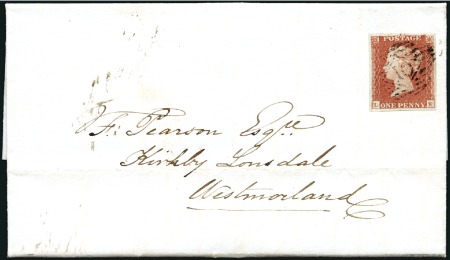 POSTAGE
ONE PENNY
F: Pearson Esqre
Kirkby Lonsdale
Westmorland